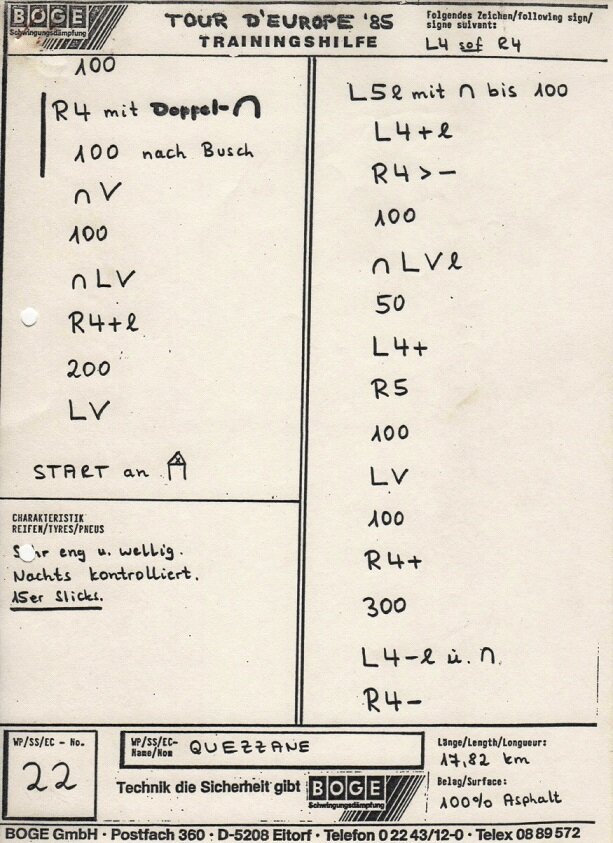 BOGE
Schwingungsdämpfung
TOUR D'EUROPE '85
TRAININGSHILFE
Folgendes Zeichen/following sign/
signe suivant:
L4 sof R4
100
R4 mit Doppel-∩
100 nach Busch
∩ V
100
∩ LV
R4+l
200
LV
START an
CHARAKTERISTIK
REIFEN/TYRES/PNEUS
Sehr eng u. wellig.
Nachts kontrolliert.
15er Slicks.
L5l mit ∩ bis 100
L4+l
R4>-
100
∩ LVl
50
L4+
R5
100
LV
100
R4+
300
L4-l ü. ∩
R4-
WP/SS/EC - No.
22
WP/SS/EC-
Name/Nom
QUEZZANE
Technik die Sicherheit gibt
BOGE
Schwingungsdämpfung
Länge/Length/Longueur:
17,82 km
Belag/Surface:
100% Asphalt
BOGE GmbH · Postfach 360 · D-5208 Eitorf · Telefon 0 22 43/12-0 · Telex 08 89 572